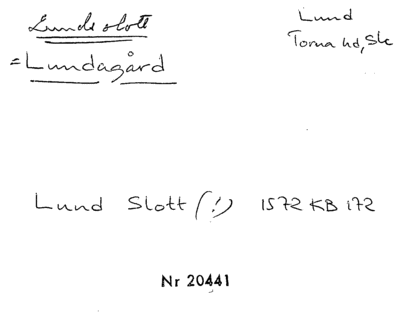 Lunds slott
= Lundagård
Lund
Torna hd, Sk
Lund Slott (!) 1572 KB 172
Nr 20441